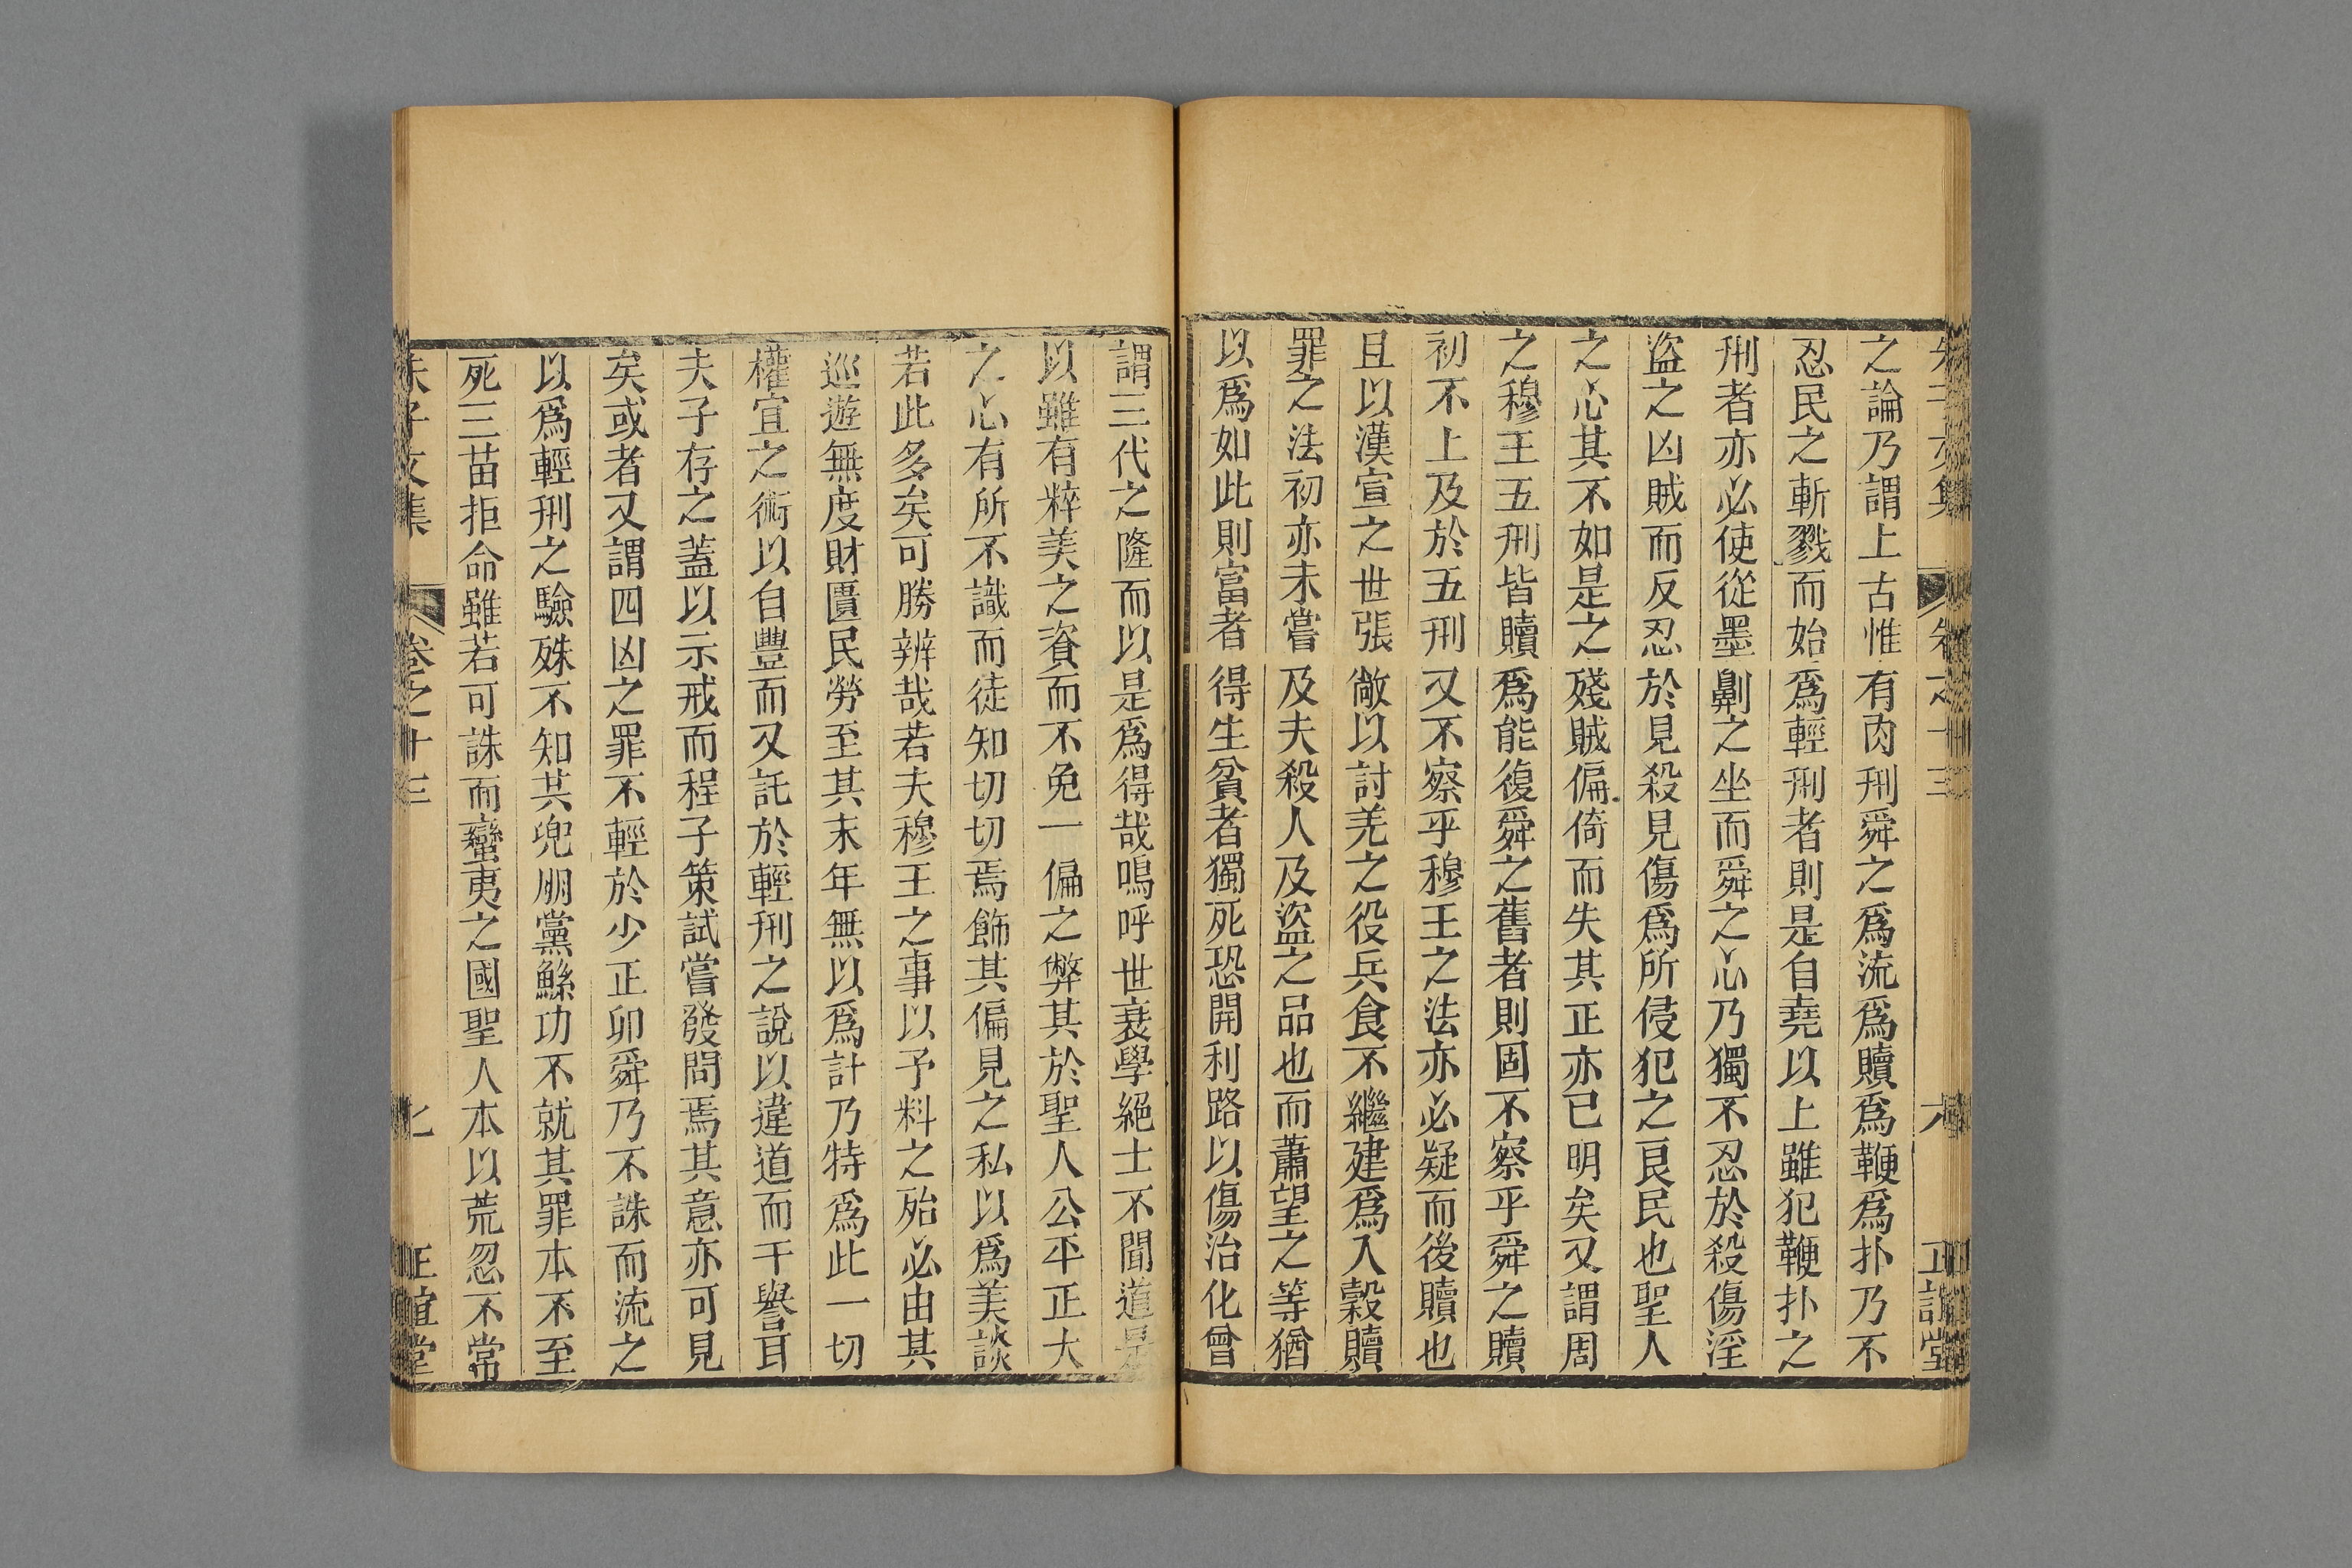 朱子文集 卷之十三 六 正誼堂
之論乃謂上古惟有肉刑舜之爲流爲贖爲鞭爲扑乃不
忍民之斬戮而始爲輕刑者則是自堯以上雖犯鞭扑之
刑者亦必使從墨劓之坐而舜之心乃獨不忍於殺傷淫
盜之凶賊而反忍於見殺見傷爲所侵犯之良民也聖人
之心其不如是之殘賊偏倚而失其正亦已明矣又謂周
之穆王五刑皆贖爲能復舜之舊者則固不察乎舜之贖
初不上及於五刑又不察乎穆王之法亦必疑而後贖也
且以漢宣之世張敞以討羌之役兵食不繼建爲入穀贖
罪之法初亦未嘗及夫殺人及盜之品也而蕭望之等猶
以爲如此則富者得生貧者獨死恐開利路以傷治化曾
謂三代之隆而以是爲得哉嗚呼世衰學絕士不聞道是
以雖有粹美之資而不免一偏之弊其於聖人公平正大
之心有所不識而徒知切切焉飾其偏見之私以爲美談
若此多矣可勝辨哉若夫穆王之事以予料之殆必由其
巡遊無度財匱民勞至其末年無以爲計乃特爲此一切
權宜之術以自豐而又託於輕刑之說以違道而干譽耳
夫子存之蓋以示戒而程子策試嘗發問焉其意亦可見
矣或者又謂四凶之罪不輕於少正卯舜乃不誅而流之
以爲輕刑之驗殊不知共兜朋黨鯀功不就其罪本不至
死三苗拒命雖若可誅而蠻夷之國聖人本以荒忽不常
朱子文集 卷之十三 七 正誼堂